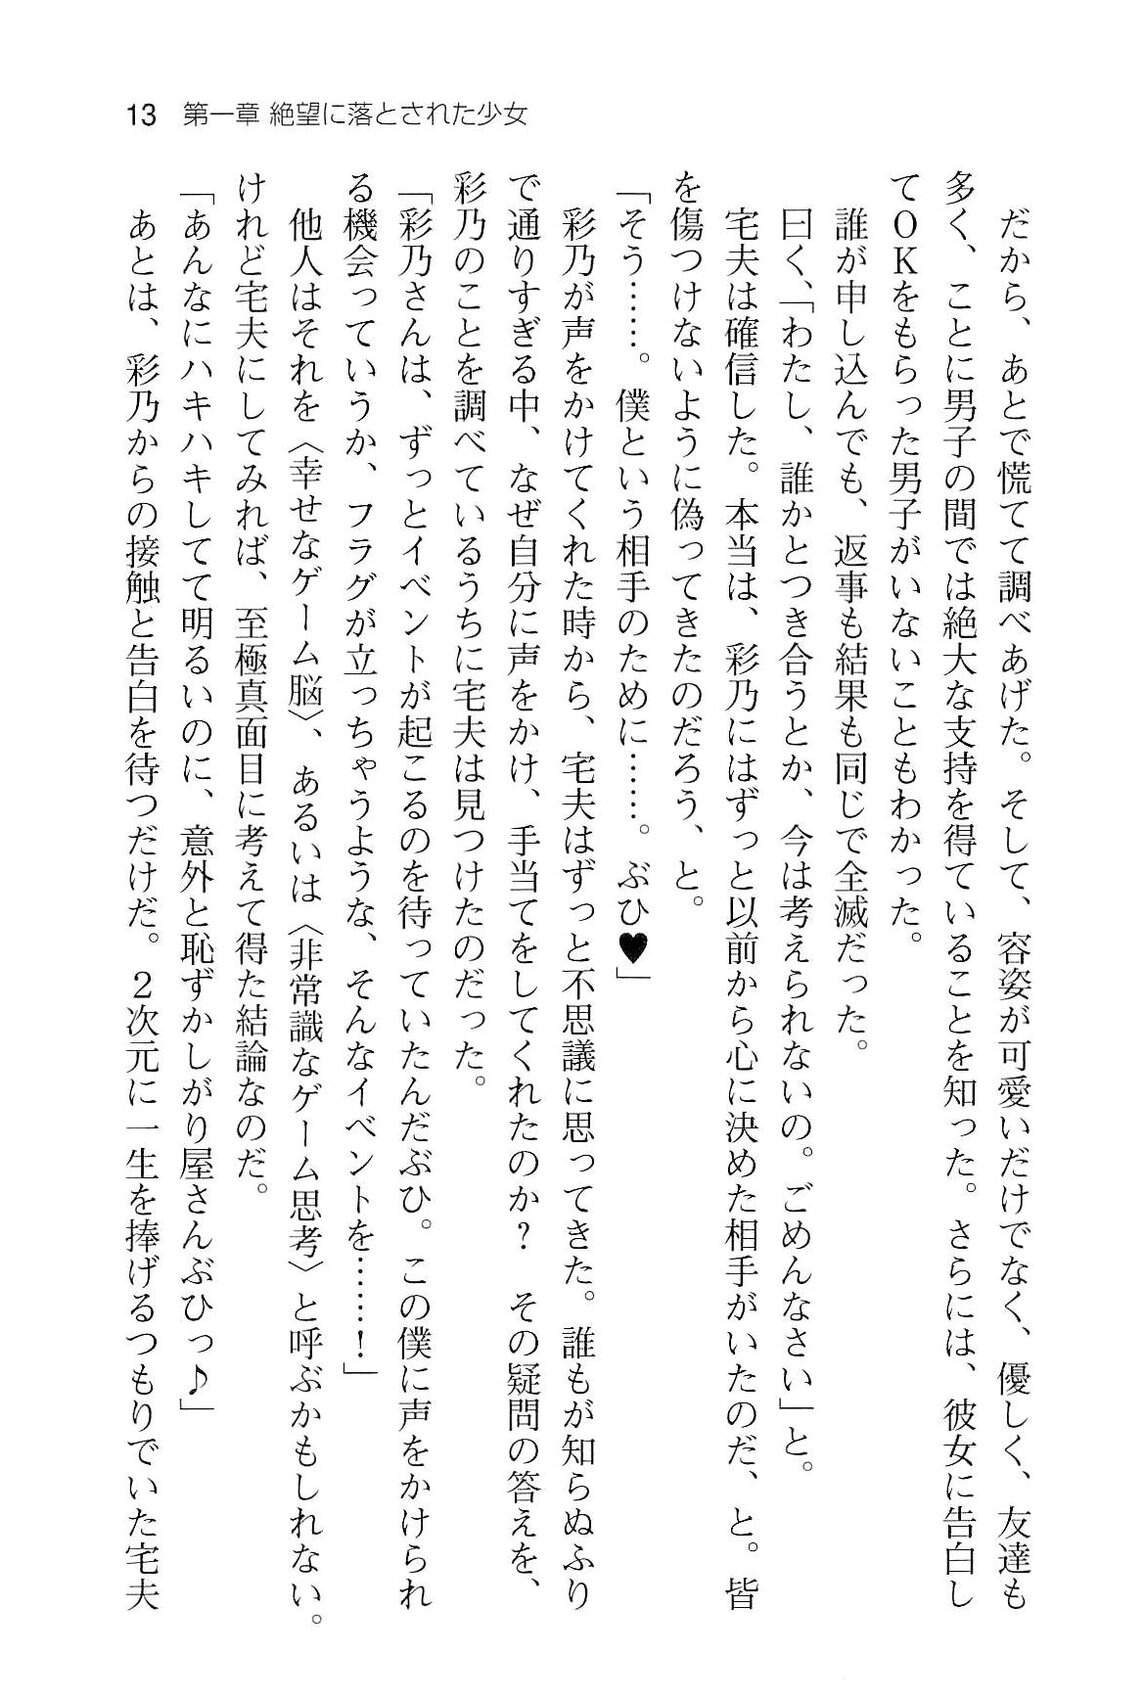 13 第一章 絶望に落とされた少女
だから、あとで慌てて調べあげた。そして、容姿が可愛いだけでなく、優しく、友達も
多く、ことに男子の間では絶大な支持を得ていることを知った。さらには、彼女に告白し
てOKをもらった男子がいないこともわかった。
誰が申し込んでも、返事も結果も同じで全滅だった。
曰く、「わたし、誰かとつき合うとか、今は考えられないの。ごめんなさい」と。
宅夫は確信した。本当は、彩乃にはずっと以前から心に決めた相手がいたのだ、と。皆
を傷つけないように偽ってきたのだろう、と。
「そう……。僕という相手のために……。ぶひ♥」
彩乃が声をかけてくれた時から、宅夫はずっと不思議に思ってきた。誰もが知らぬふり
で通りすぎる中、なぜ自分に声をかけ、手当てをしてくれたのか? その疑問の答えを、
彩乃のことを調べているうちに宅夫は見つけたのだった。
「彩乃さんは、ずっとイベントが起こるのを待っていたんだぶひ。この僕に声をかけられ
る機会っていうか、フラグが立っちゃうような、そんなイベントを……!」
他人はそれを〈幸せなゲーム脳〉、あるいは〈非常識なゲーム思考〉と呼ぶかもしれない。
けれど宅夫にしてみれば、至極真面目に考えて得た結論なのだ。
「あんなにハキハキしてて明るいのに、意外と恥ずかしがり屋さんぶひっ♪」
あとは、彩乃からの接触と告白を待つだけだ。2次元に一生を捧げるつもりでいた宅夫